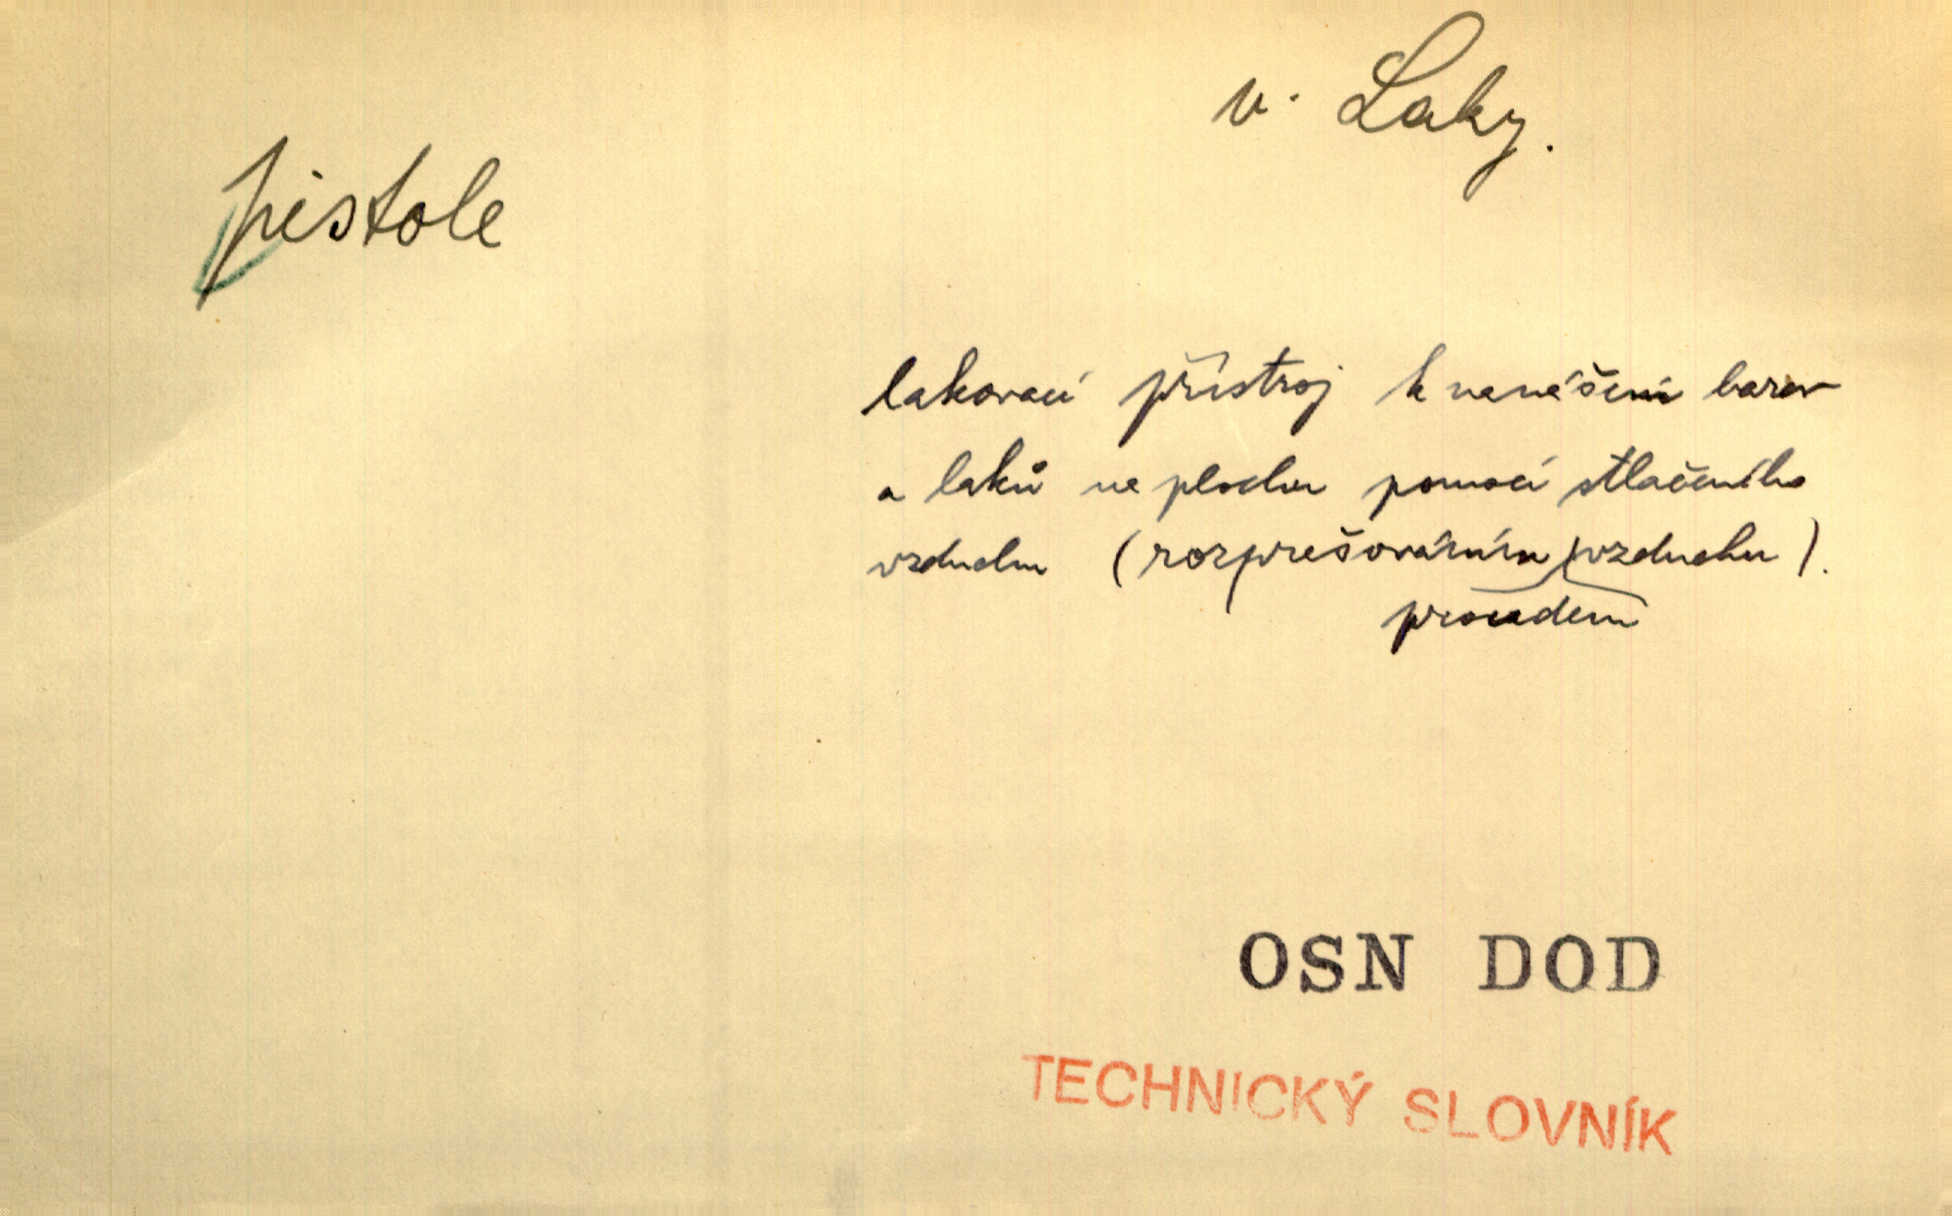 v. Laky.
pistole
lakovací přístroj k nanášení barev
a laků na plochu pomocí stlačeného
vzduchu (rozprašováním vzduchu).
proudem
OSN DOD
TECHNICKÝ SLOVNÍK